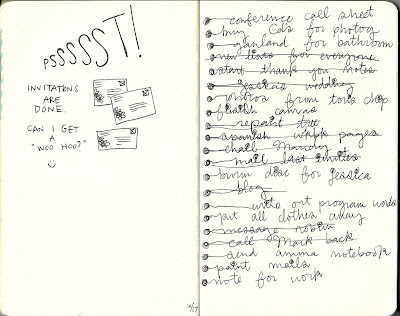 PSSSSST!
INVITATIONS
ARE
DONE.
CAN I GET
A
"WOO HOO?"
conference call sheet
buy CDs for photog
garland for bathroom
new lists for everyone
start thank you notes
jessica's wedding
photos from
finish canvas
repaint tree
spanish work pages
email Mandy
mail last invites
burn disc for jessica
blog
write out program words
put all clothes away
message robin
call Mark back
send amma notebook
paint nails
note for work